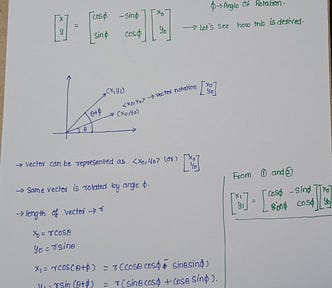 [x y] = [cosφ -sinφ sinφ cosφ] [x₀ y₀]
φ → Angle Of Rotation.
→ Let's see how this is derived.
(x₁,y₁)
<x₀,y₀> → vector notation [x₀ y₀]
(x₀,y₀)
θ+φ
θ
→ vector can be represented as <x₀,y₀> (or) [x₀ y₀]
→ Same vector is rotated by angle φ.
→ length of vector → r
x₀ = rcosθ
y₀ = rsinθ
x₁ = rcos(θ+φ) = r(cosθcosφ - sinθsinφ)
y₁ = rsin(θ+φ) = r(sinθcosφ + cosθsinφ).
From ① and ②
[x₁ y₁] = [cosφ -sinφ sinφ cosφ] [x₀ y₀]